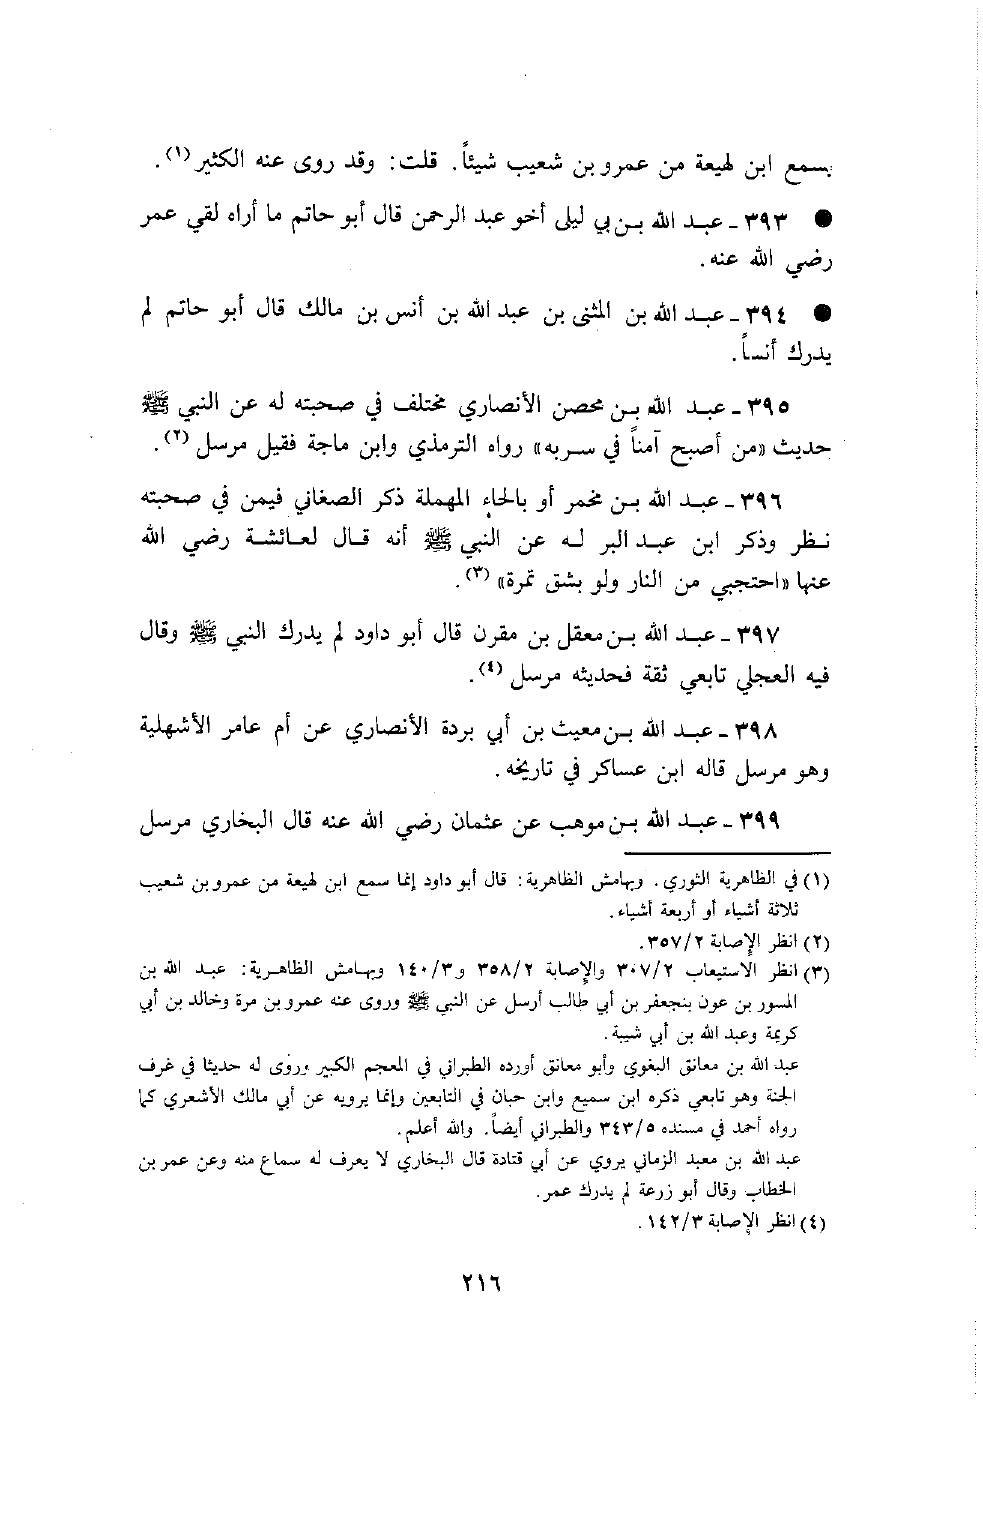 يسمع ابن لهيعة من عمرو بن شعيب شيئاً. قلت: وقد روى عنه الكثير (١).
● ٣٩٣ ـ عبد الله بن بي ليلى أخو عبد الرحمن قال أبو حاتم ما أراه لقي عمر
رضي الله عنه.
● ٣٩٤ ـ عبد الله بن المثنى بن عبد الله بن أنس بن مالك قال أبو حاتم لم
يدرك أنساً.
٣٩٥ ـ عبد الله بن محصن الأنصاري مختلف في صحبته له عن النبي ﷺ
حديث «من أصبح آمناً في سربه» رواه الترمذي وابن ماجة فقيل مرسل (٢).
٣٩٦ ـ عبد الله بن مخمر أو بالحاء المهملة ذكر الصغاني فيمن في صحبته
نظر وذكر ابن عبد البر له عن النبي ﷺ أنه قال لعائشة رضي الله
عنها «احتجبي من النار ولو بشق تمرة» (٣).
٣٩٧ ـ عبد الله بن معقل بن مقرن قال أبو داود لم يدرك النبي ﷺ وقال
فيه العجلي تابعي ثقة فحديثه مرسل (٤).
٣٩٨ ـ عبد الله بن معيث بن أبي بردة الأنصاري عن أم عامر الأشهلية
وهو مرسل قاله ابن عساكر في تاريخه.
٣٩٩ ـ عبد الله بن موهب عن عثمان رضي الله عنه قال البخاري مرسل
(١) في الظاهرية الثوري. وبهامش الظاهرية: قال أبو داود إنما سمع ابن لهيعة من عمرو بن شعيب
ثلاثة أشياء أو أربعة أشياء.
(٢) انظر الإصابة ٣٥٧/٢.
(٣) انظر الاستيعاب ٣٠٧/٢ والإصابة ٣٥٨/٢ و١٤٠/٣ وبهامش الظاهرية: عبد الله بن
المسور بن عون بنجعفر بن أبي طالب أرسل عن النبي ﷺ وروى عنه عمرو بن مرة وخالد بن أبي
كريمة وعبد الله بن أبي شيبة.
عبد الله بن معانق البغوي وأبو معانق أورده الطبراني في المعجم الكبير وروى له حديثا في غرف
الجنة وهو تابعي ذكره ابن سميع وابن حبان في التابعين وإنما يرويه عن أبي مالك الأشعري كما
رواه أحمد في مسنده ٣٤٣/٥ والطبراني أيضاً. والله أعلم.
عبد الله بن معبد الزماني يروي عن أبي قتادة قال البخاري لا يعرف له سماع منه وعن عمر بن
الخطاب وقال أبو زرعة لم يدرك عمر.
(٤) انظر الإصابة ١٤٢/٣.
٢١٦